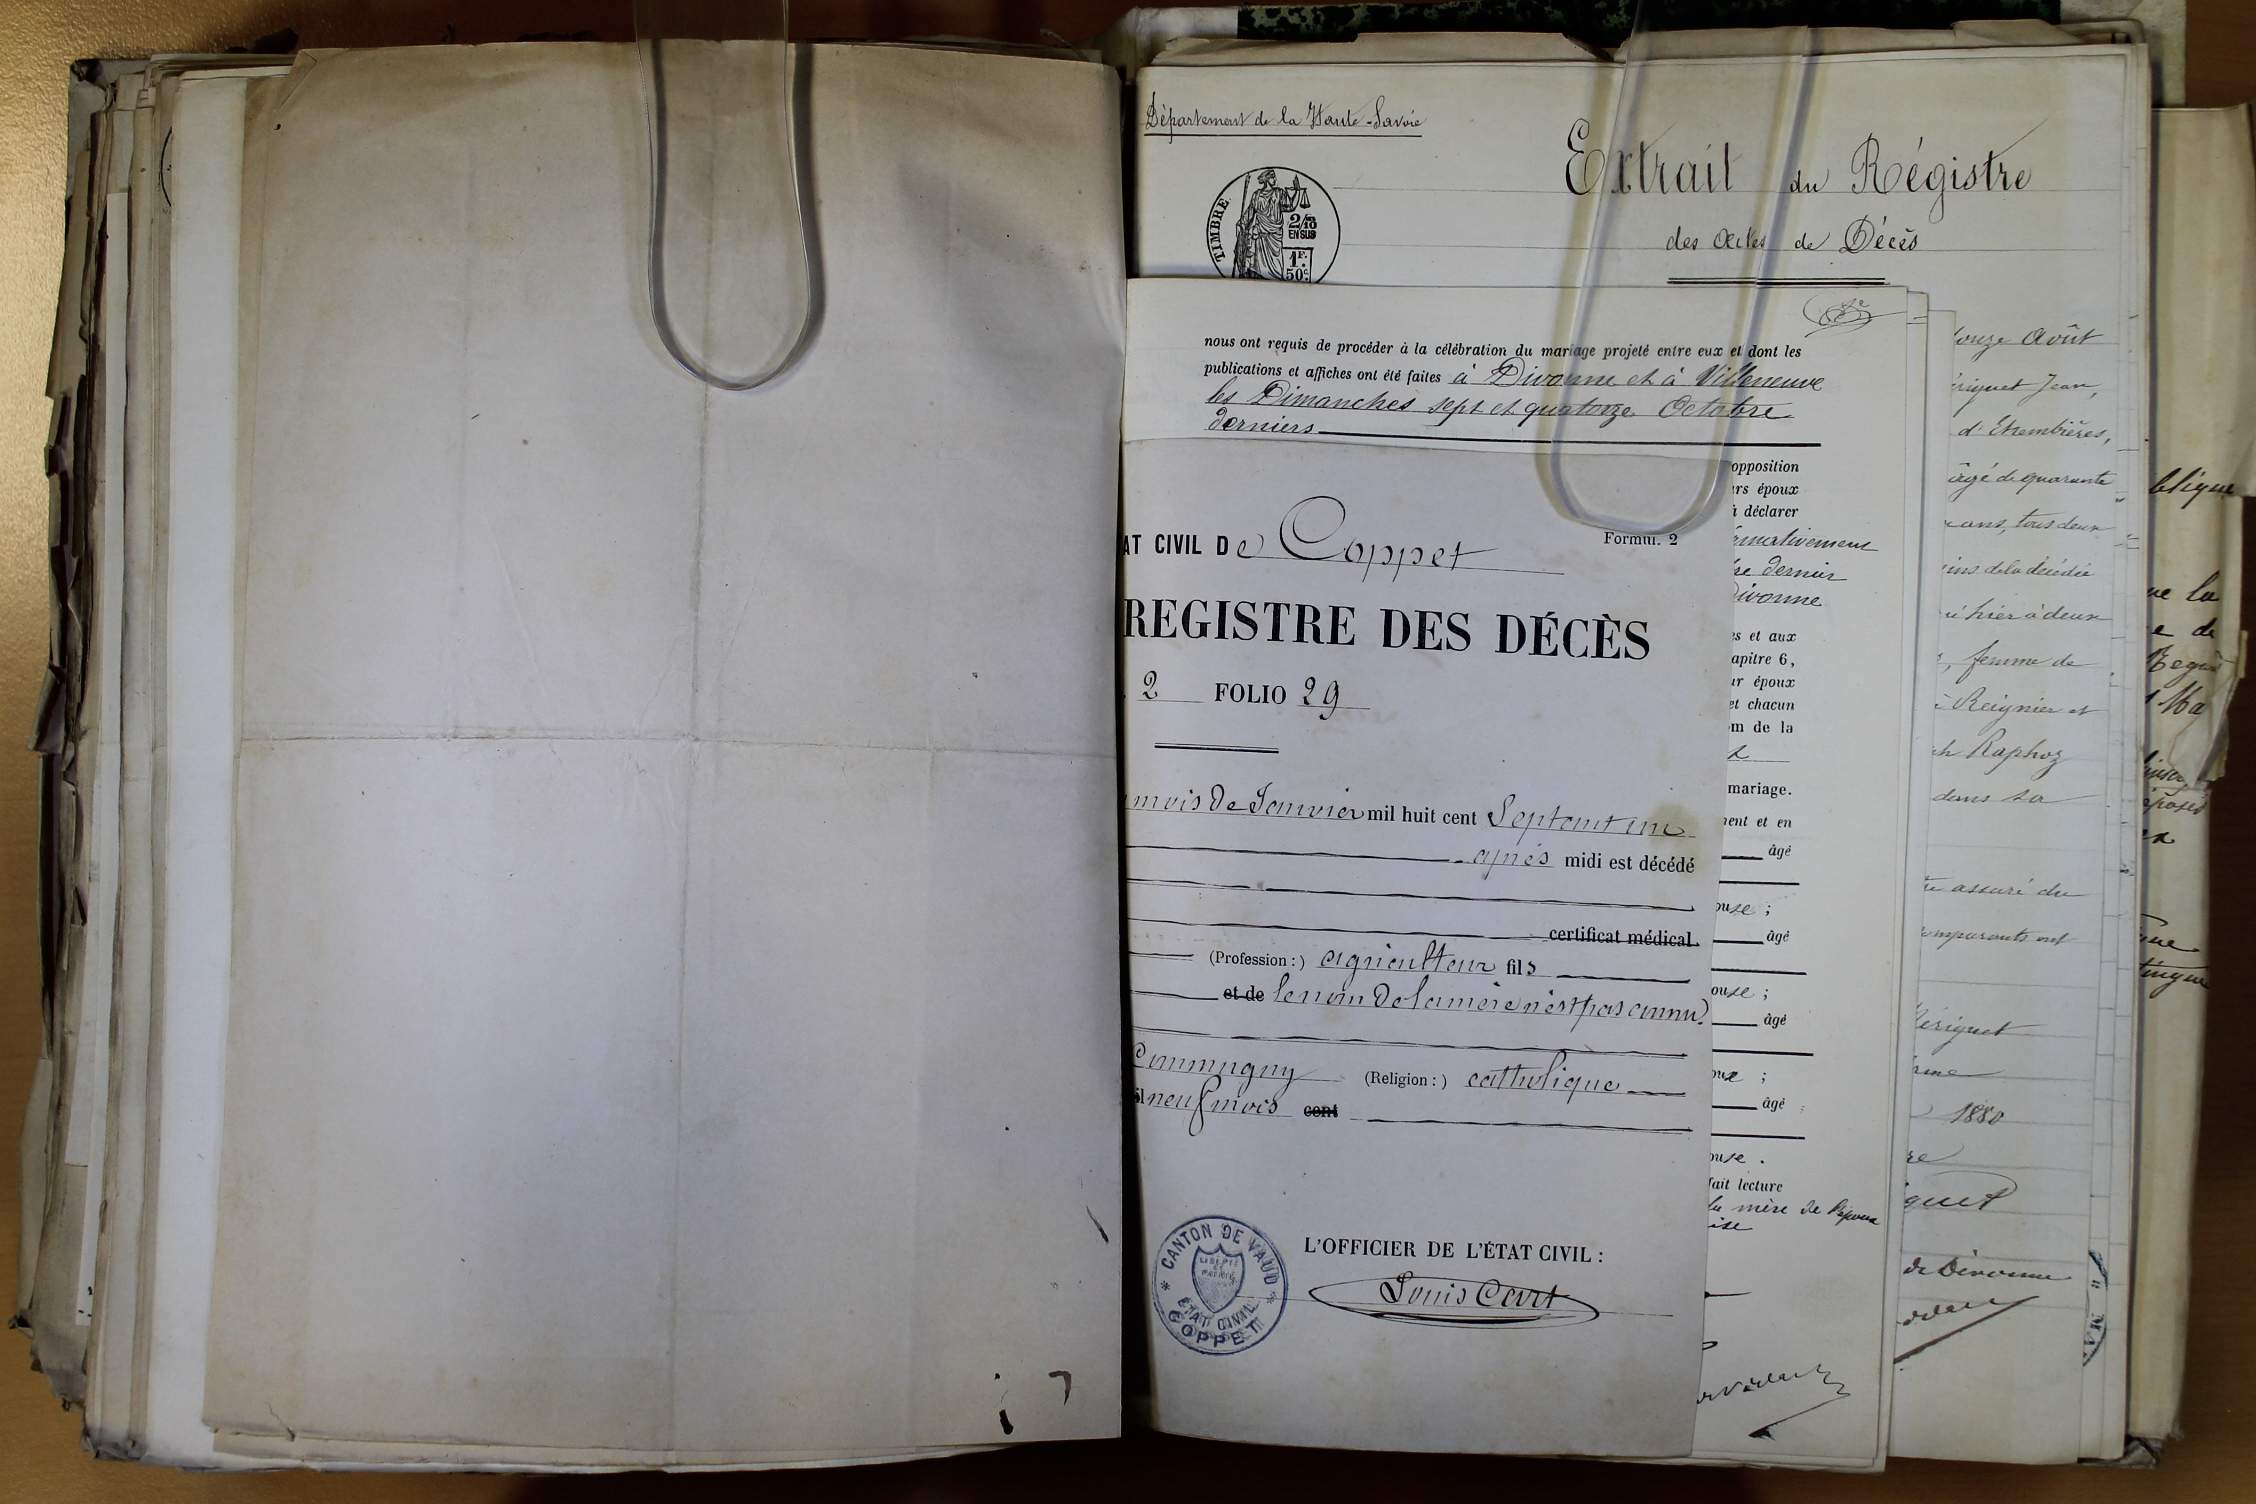 Département de la Haute-Savoie
Extrait du Régistre
des actes de Décès
TIMBRE
2/10
EN SUS
1F.
50c.
nous ont requis de procéder à la célébration du mariage projeté entre eux et dont les
publications et affiches ont été faites à Divonne et à Villeneuve
les Dimanches sept et quatorze Octobre
derniers
AT CIVIL De Coppet
Formul. 2
REGISTRE DES DÉCÈS
2 FOLIO 29
mois de Janvier mil huit cent Septant un
après midi est décédé
certificat médical.
(Profession:) agriculteur fils
et de le nom de la mère n'est pas connu.
Commugny (Religion:) catholique
neuf mois cent
CANTON DE VAUD
LIBERTÉ
ET
PATRIE
ÉTAT CIVIL
COPPET
L'OFFICIER DE L'ÉTAT CIVIL:
Louis Cart
opposition
rs époux
à déclarer
dernier
Divonne
es et aux
apitre 6,
ur époux
et chacun
om de la
mariage.
ment et en
âgé
ouse;
âgé
ouse;
âgé
âgé
ouse.
fait lecture
la mère de l'épouse
onze Août
riquet Jean,
d'Etrembières,
âgé de quarante
ans, tous deux
ins de la décédée
hier à deux
femme de
Reignier et
Raphoz
dans sa
assuré du
omparants ont
ériquet
1880
re
de Divonne
blique
ue la
e de